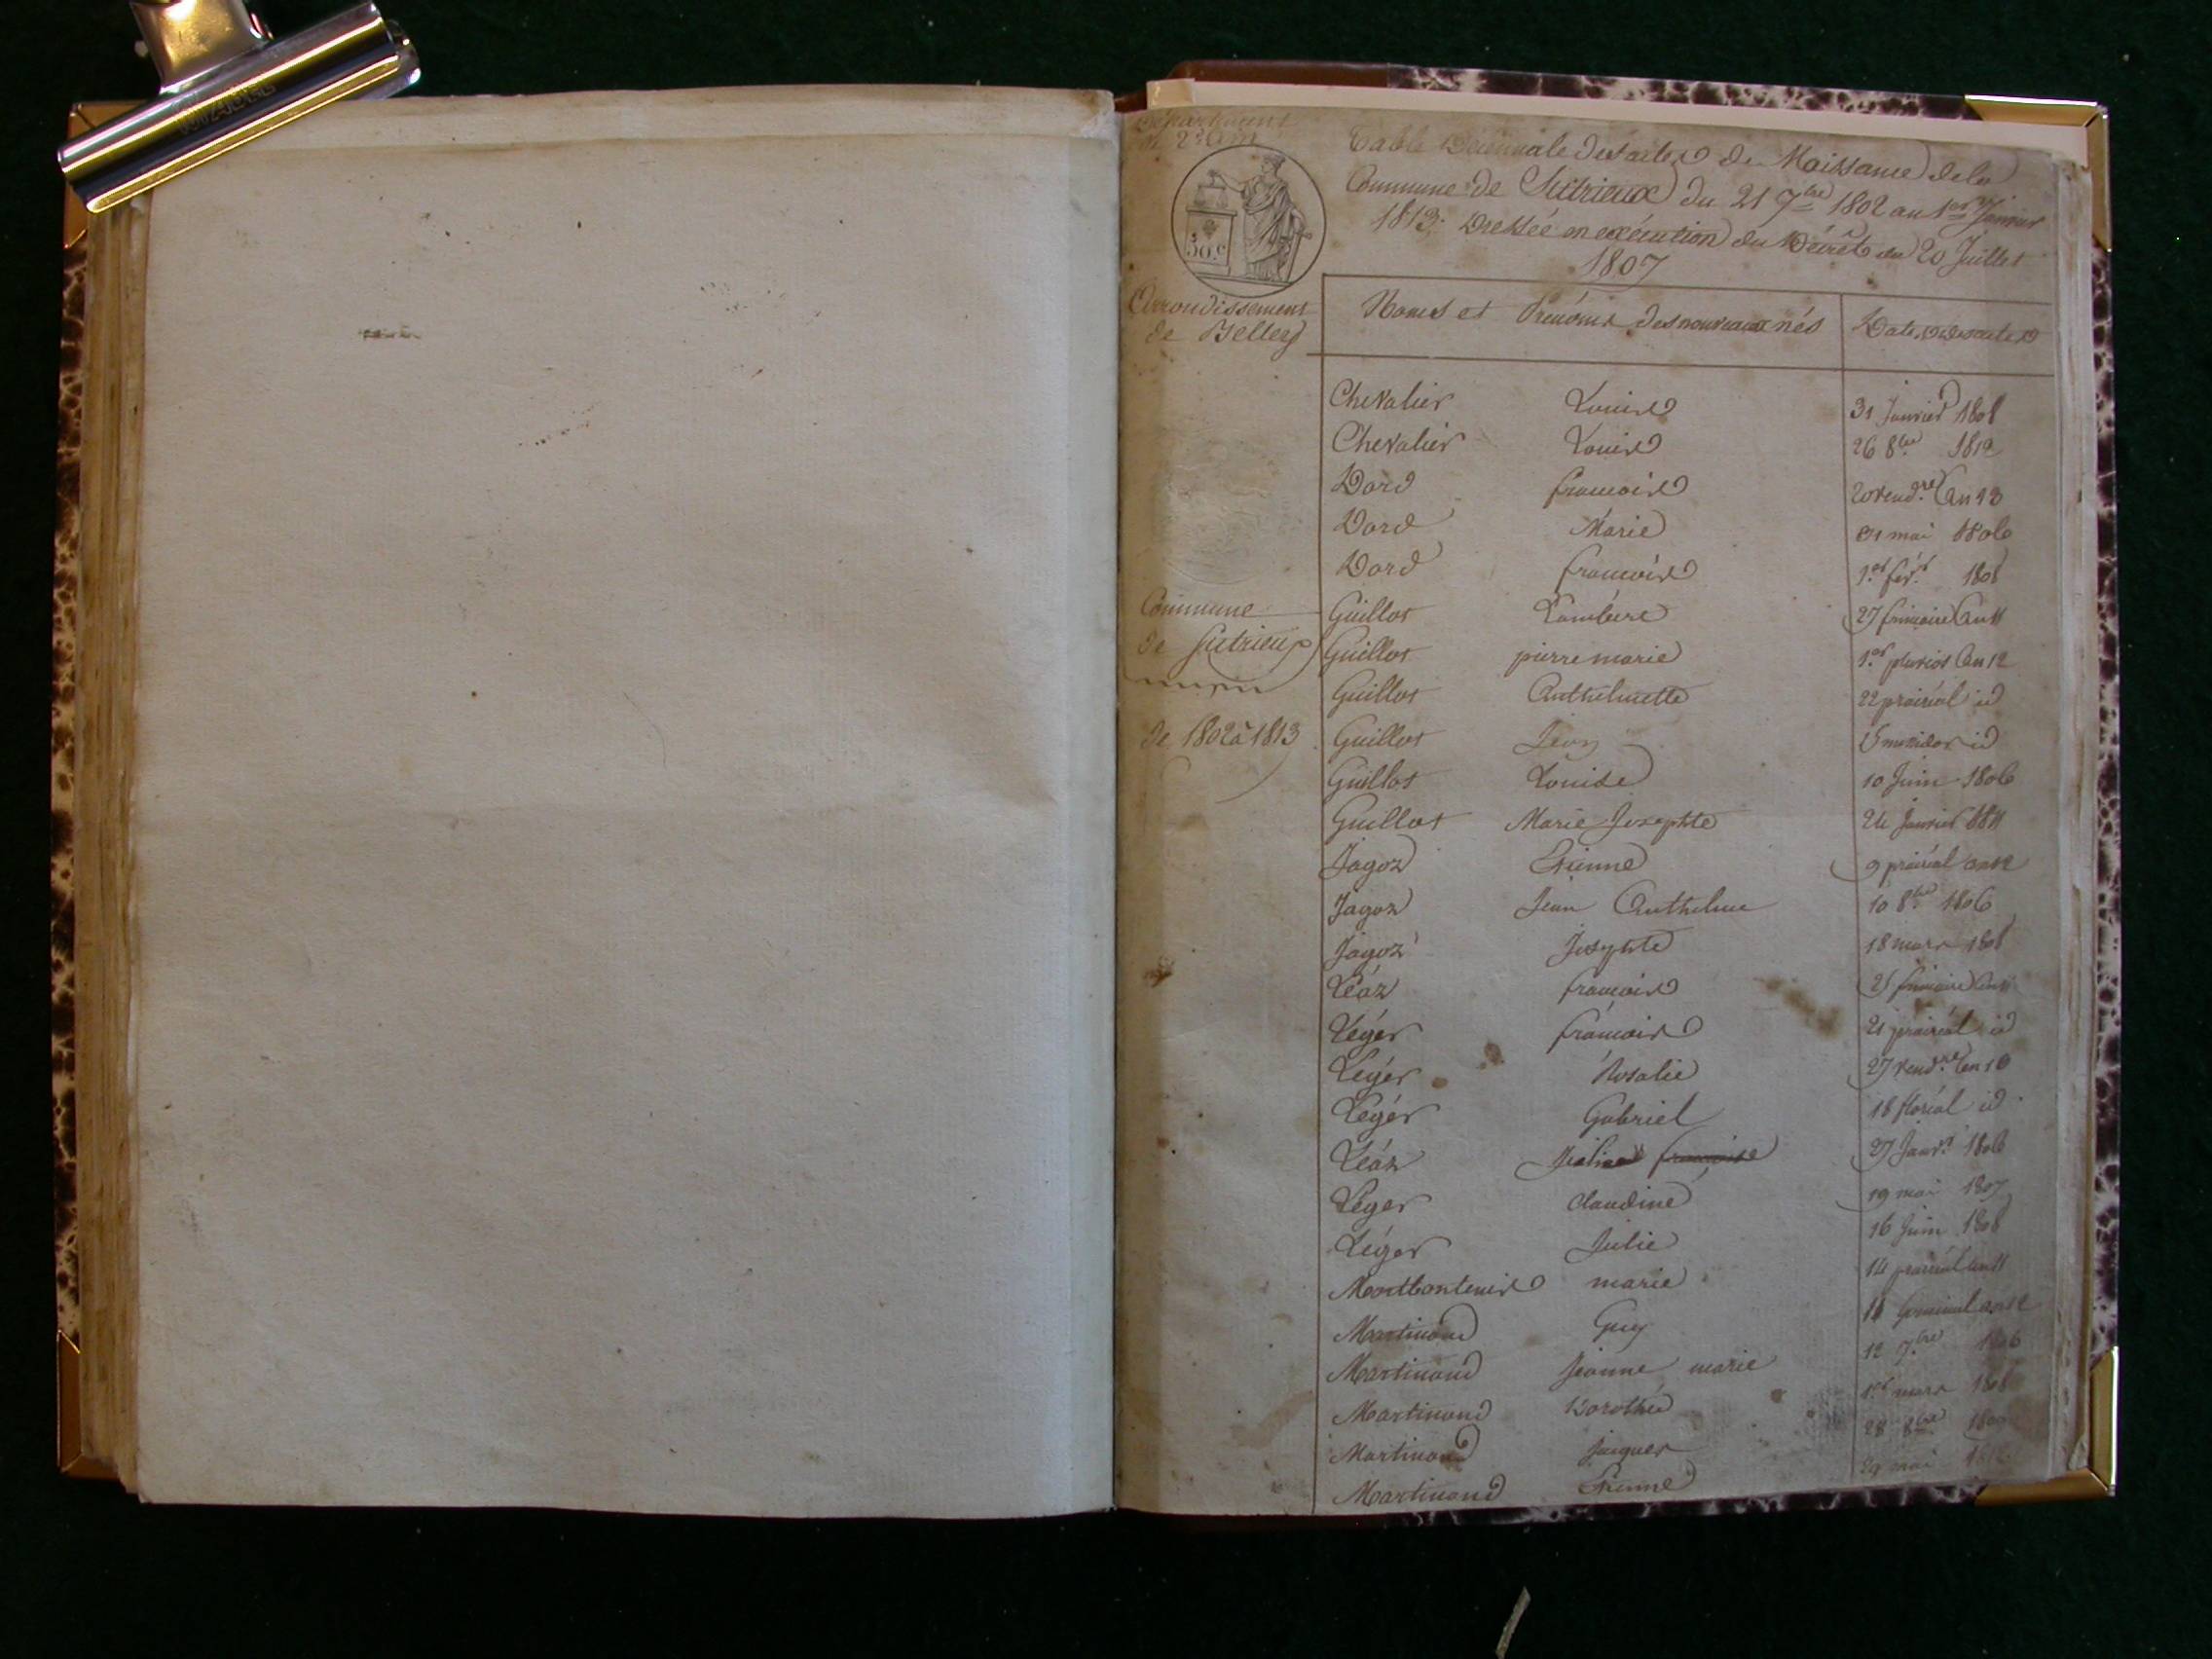 Département
de l'Ain
Table Décennale des actes de Naissance de la
Commune de Sutrieux du 21 7bre 1802 au 1er Janvier
1813. Dressée en exécution du Décret du 20 Juillet
1807
50.c
Arrondissement
de Belley
Noms et Prénoms des nouveaux nés Dates des actes
Chevalier Louise 31 Janvier 1808
Chevalier Louise 26 8bre 1812
Dord francoise 20 vendre an 13
Dord Marie 31 mai 1806
Dord francoise 1er févr 1808
Commune
de Sutrieux
de 1802 à 1813
Guillot 27 frimaire an 11
Guillot pierre marie 1er pluviot an 12
Guillot Anthelmette 22 prairial id
Guillot messidor id
Guillot Louise 10 Juin 1806
Guillot Marie Josephte 24 Janvier 1811
Jagoz Etienne 9 prairial an 12
Jagoz Jean Anthelme 10 8bre 1806
Jagoz Josephte 18 mars 1808
Léaz francoise frimaire an 11
Légér francoise 21 prairial id
Légér Rosalie 27 vendre an
Légér Gabriel 18 floréal id
Léaz francoise 27 Janvr 1806
Léger Claudine 19 mai 1807
Léger Julie 16 Juin 1808
marie 14 prairial an 11
Martinand Guy 14 Germinal an 12
Martinand Jeanne marie 12 7bre 1806
Martinand Dorothée 1er mars 1808
Martinand Jacques 28 8bre
Martinand Etienne 29 mai